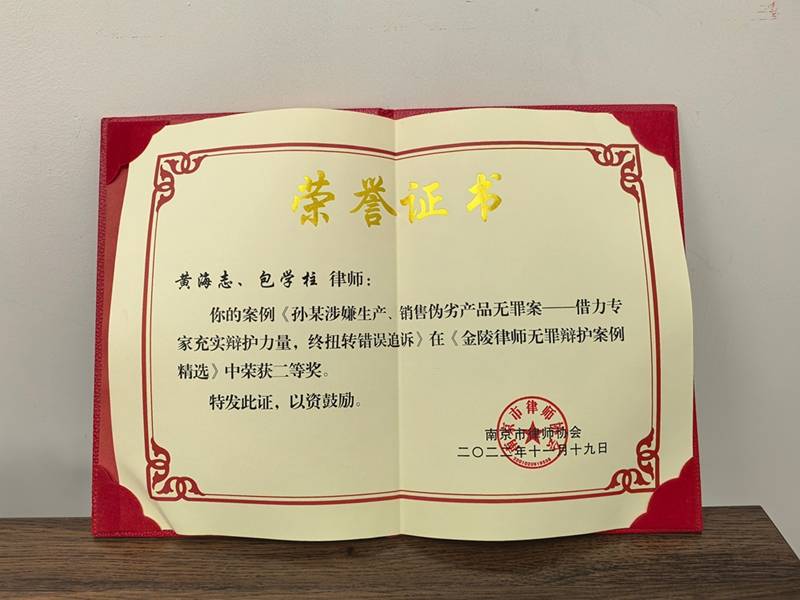 荣誉证书
黄海志、包学柱 律师：
你的案例《孙某涉嫌生产、销售伪劣产品无罪案——借力专
家充实辩护力量，终扭转错误追诉》在《金陵律师无罪辩护案例
精选》中荣获二等奖。
特发此证，以资鼓励。
南京市律师协会
二〇二二年十一月十九日